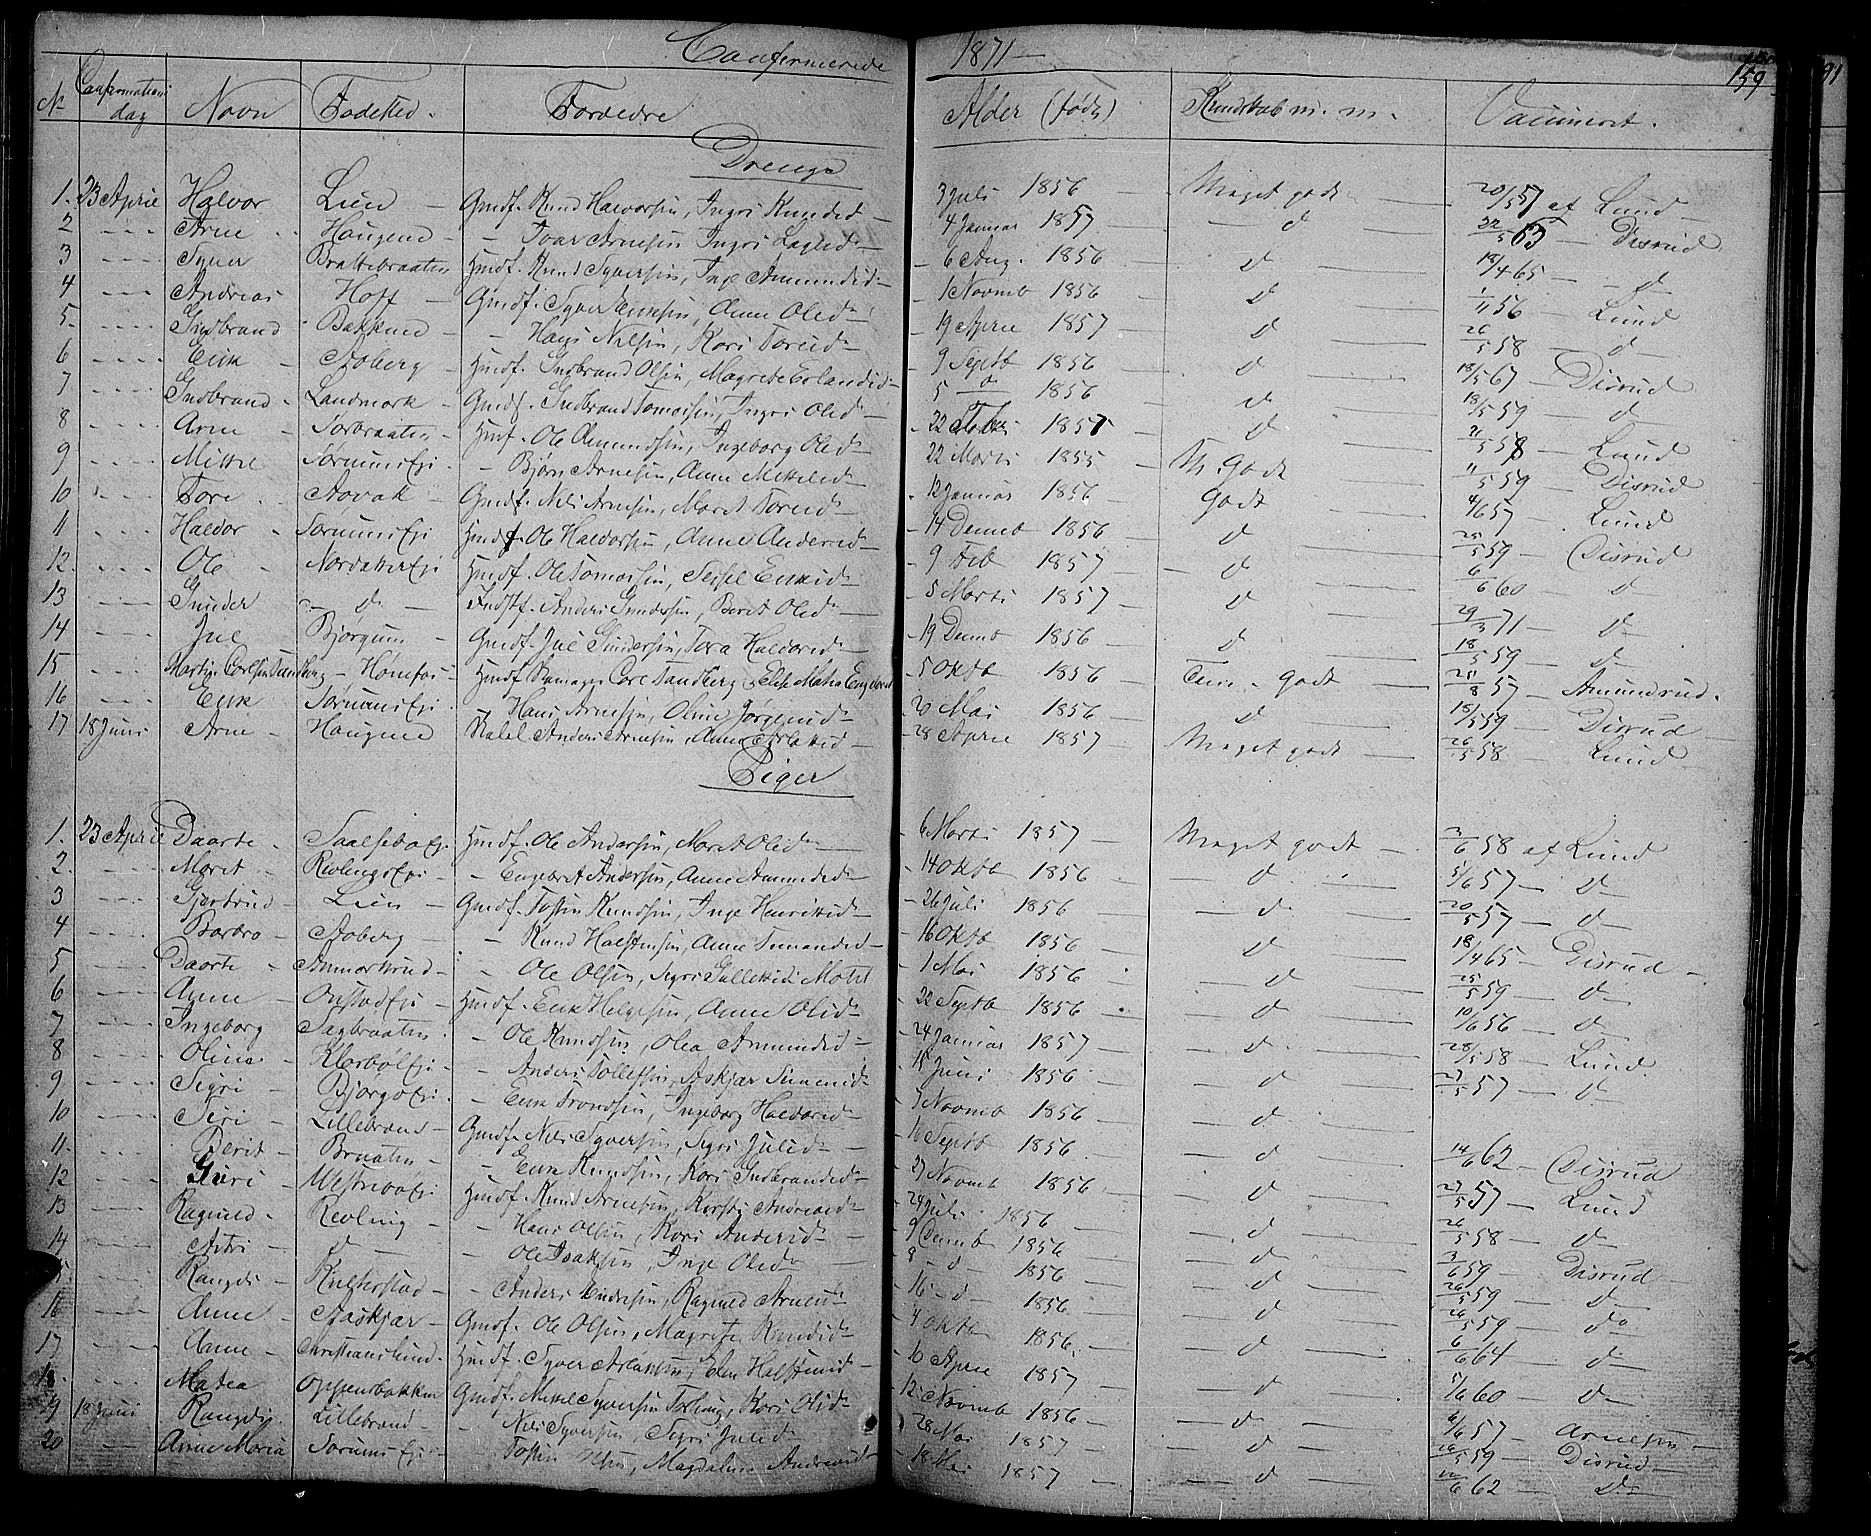 Confirmerede 1871 — 159
91
No Confirmationsdag Navn Fødested. Forældre Alder (født) Kundskab m. m. Vaccineret.
Drenge
1. 23 April Halvor Lien Gmdf. Knud Halvorsen, Ingri Knudsd — 3 Juli 1856 — Meget godt — 20/5 57 af Lund —
2 - - - Arne Haugend — Ivar Arnesen, Ingri — 4 Januar 1857 — d — 22/5 63 — Disrud
3 - - - Syver Brattebraaten Hmdf. Knud Syversen, Inge Amundsd — 6 Aug. 1856 — d — 18/4 65 — d —
4 - - - Andreas Hoff — Gmdf. Syver, Anne Olsd — 1 Novmb 1856 — d — 1/11 56 — Lund
5. - - - Gudbrand Bakkend — Hans Nilsen, Kari Toresd — 19 April 1857 — d — 26/5 58 — d —
6 - - - Erik — Aaberg — Hmdf. Gudbrand Olsen, Magrete Erlandsd — 9 Septb 1856 — d — 18/5 67 — Disrud
7 - - - Gudbrand - Landmark — Gmdf. Gudbrand Tomassen, Ingri Olsd — 5 d 1856 — d — 18/5 59 — d —
8 - - - Arne — Sørbraaten — Hmf. Ole Amundsen, Ingeborg Olsd — 22 1857 — d — 21/5 58 — Lund
9 - - - Mikkel — Sørumsei. — Bjørn Arnesen, Anne Mikkelsd — 22 Marts 1855 — M. Godt — 11/5 59 — Disrud
10 - - - Tore — Aavak — Gmdf. Nils Arnesen, Marit Toresd — 12 Januar 1856 — Godt — 4/6 57 — Lund
11 - - - Haldor — Sørumsei Hmdf. Ole Haldorsen, Anne Andersd — 14 Decmb 1856 — d — 25/5 59 — Disrud
12. - - - Ole — Nordakerei Hmdf. Ole Tomassen, Sissel Eriksd — 9 Feb 1857 — d — 6/6 60 — d
13 - - - Gunder — d — Indstf. Anders Gundersen, Berit Olsd — 5 Marts 1857 — d — 29/3 71 — d —
14 - - - Jul — Bjørgum — Gmdf. Jul Gundersen, Tora Haldorsd — 19 Decmb 1856 — d — 18/5 59 — d —
15 - - - Martin Carlsen Tandberg — Hønefos Hmdf. Carl Tandberg, Elise Matea Engebret — 5 Oktb 1856 — Tem. godt — 25/8 57 — Amundrud.
16 - - - Erik Sørumsei. Hans Arnesen, Oline Jørgensd — 20 Mai 1856 — d — 18/5 59 — Disrud
17 18 Juni Arne — Haugend Anders Arnesen, Anne — 28 April 1857 — Meget godt — 26/5 58 — Lund —
Piger
1. 23 April Daarte — ei. Hmdf. Ole Andersen, Marit Olsd — 6 Marts 1857 — Meget godt — 3/6 58 af Lund
2. - - - Marit — Revlingsei — Engebret Andersen, Anne Amundsd — 14 Oktb 1856 — d — 5/6 57 — d —
3 - - - Gjertrud — Lien — Gmdf. Tosten Knudsen, Inge Henriksd — 26 Juli 1856 — d — 20/5 57 — d —
4 - - - Barbro — Aaberg — Knud Halstensen, Anne — 16 Oktb 1856 — d — 18/4 65 — Disrud —
5 - - - Daarte — — Ole Olsen, Sigri — 1 Mai 1856 — d — 25/5 59 — d —
6 - - - Anne — Onstadei — Hmdf. Erik Helgesen, Anne Olsd — 22 Septb 1856 — d — 10/6 56 — d —
7 - - - Ingeborg Sagbraaten. — Ole Knudsen, Olea Amundsd — 24 Januar 1857 — d — 28/5 58 — Lund.
8 - - - Olina — ei — Anders Tollefsen, Askjær — 15 Juni 1856 — d — 27/5 57 — d —
9 - - - Sigri — Bjørgoei. — Erik Trondsen, Ingeborg Haldorsd — 5 Novmb 1856 — d
10 - - - Siri — Lillebrand — Gmdf. Nils Syversen, Sigri Julsd — 16 Septb 1856 — d — 14/6 62 — Disrud
11. - - - Berit — Braaten — Erik Knudsen, Kari Gudbrandsd — 27 Novmb 1856 — d — 27/5 57 — Lund
12 - - - Guri — ei — Hmdf. Knud Arnesen, Kjersti Andreasd — 24 Juli 1856 — d — 26/5 58 — d —
13 - - - Ragnild — Revling — Hans Olsen, Kari Andersd — 9 Decmb 1856 — d — 3/6 59 — Disrud —
14 - - - Astri — d — Ole Isaksen, Inge Olsd — 8 — d — 1856 — d — 26/5 59 — d —
15 - - - Rangdi — — Anders Endresen, Ragnild Arnesd — 16 — d — 1856 — d — 26/5 59 — d
16 - - - Anne — Aaskjær — Gmdf. Ole Olsen, Magrete Knudsd — 4 Oktb 1856. — d — 6/6 64 — d —
17 - - - Anne — Christianslund. Hmdf. Syver, Elen Halstensd — 10 April 1857 — d — 5/6 60 — d —
18. - - - Matea Oppenbakken Gmdf. Mikkel Syversen, Kari Olsd — 12 Novmb 1856 — d — 6/6 57 — Arnesen —
19 18 Juni Rangdi. Lillebrand — Nils Syversen, Sigri Julsd — 28 Mai 1857 — d — 26/5 59 — Disrud —
20 — Anne Maria Sørumsei — Tosten Olsen, Magdalene Andreasd — 18 Mai 1857 — d — 12/6 62 — d —